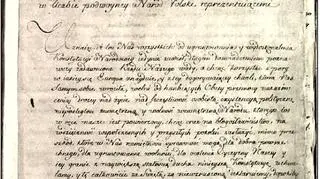 w liczbie podwóyney Naród Polski reprezentuiącemi
Uznaiąc, iż los Nas wszystkich od ugruntowania y wydoskonalenia
Konstytucyi Narodowey iedynie zawisł, długim doświadczeniem pozna-
wszy zadawnione Rządu Naszego wady, a chcąc korzystać z pory
w iakiey się Europa znayduie, y z tey dogorywaiącey chwili, która Nas
Samym sobie wróciła, wolni od hańbiących Obcey przemocy nakazów,
ceniąc drożey nad życie, nad szczęśliwość osobistą, exystencyą polityczną
niepodległość zewnętrzną y wolność wewnętrzną Narodu, którego los
w ręce nasze iest powierzony, chcąc oraz na błogosławieństwo, na
wdzięczność współczesnych y przyszłych pokoleń zasłużyć, mimo prze-
szkód, które w Nas namiętności sprawować mogą, dla dobra powsze-
chnego, dla ugruntowania wolności, dla ocalenia Oyczyzny Naszey y
iey granic, z naywiększą stałością ducha ninieyszą Konstytucyę uchwa-
lamy, y tę całkowicie za świętą, za niewzruszoną deklaruiemy, dopókiby